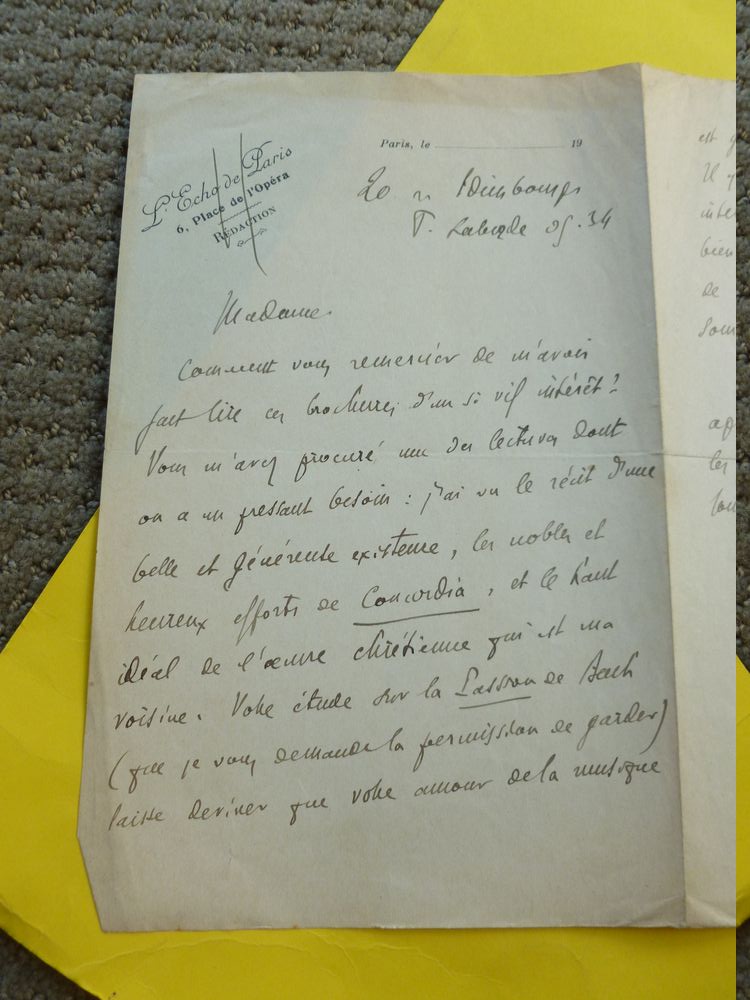 L'Echo de Paris
6, Place de l'Opéra
RÉDACTION
Paris, le 19
20 r.
T. Laborde 05.34
Madame
Comment vous remercier de m'avoir
fait lire ces brochures d'un si vif intérêt ?
Vous m'avez procuré une des lectures dont
on a un pressant besoin : j'ai vu le récit d'une
belle et généreuse existence, les nobles et
heureux efforts de Concordia, et le haut
idéal de l'œuvre chrétienne qui est ma
voisine. Votre étude sur la Passion de Bach
(que je vous demande la permission de garder)
laisse deviner que votre amour de la musique
est
Il
inté
bien
de
Som
ap
les